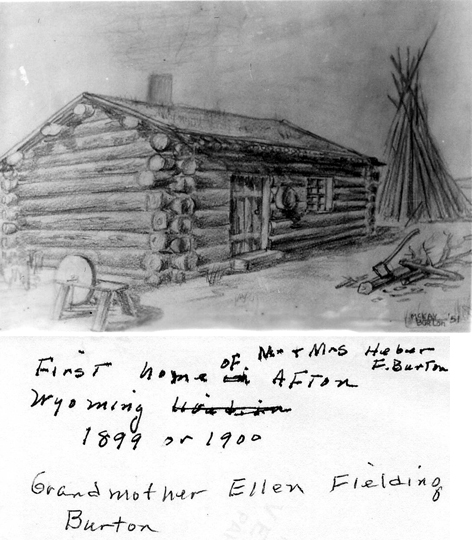 McKAY
BURTON '51
First home of Mr & Mrs Heber
F. Burton
in AFTON
Wyoming
1899 or 1900
Grandmother Ellen Fielding
Burton